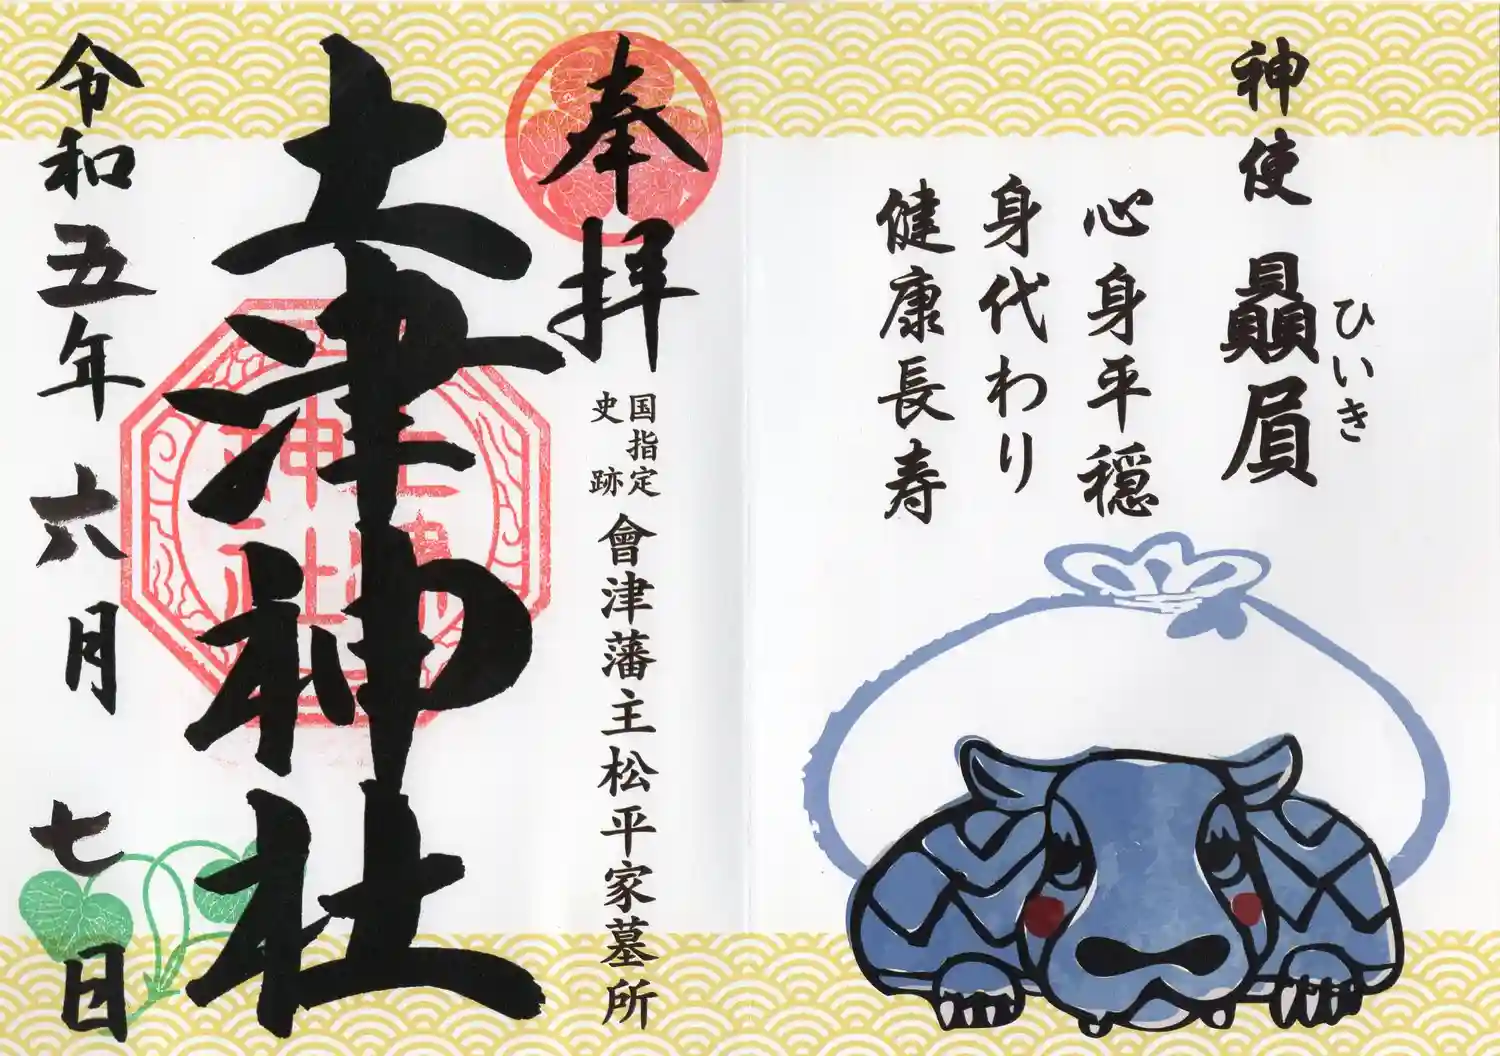 神使 贔屓
ひいき
心身平穏
身代わり
健康長寿
奉拝
国指定
史跡
會津藩主松平家墓所
土津神社
令和五年 六月 七日